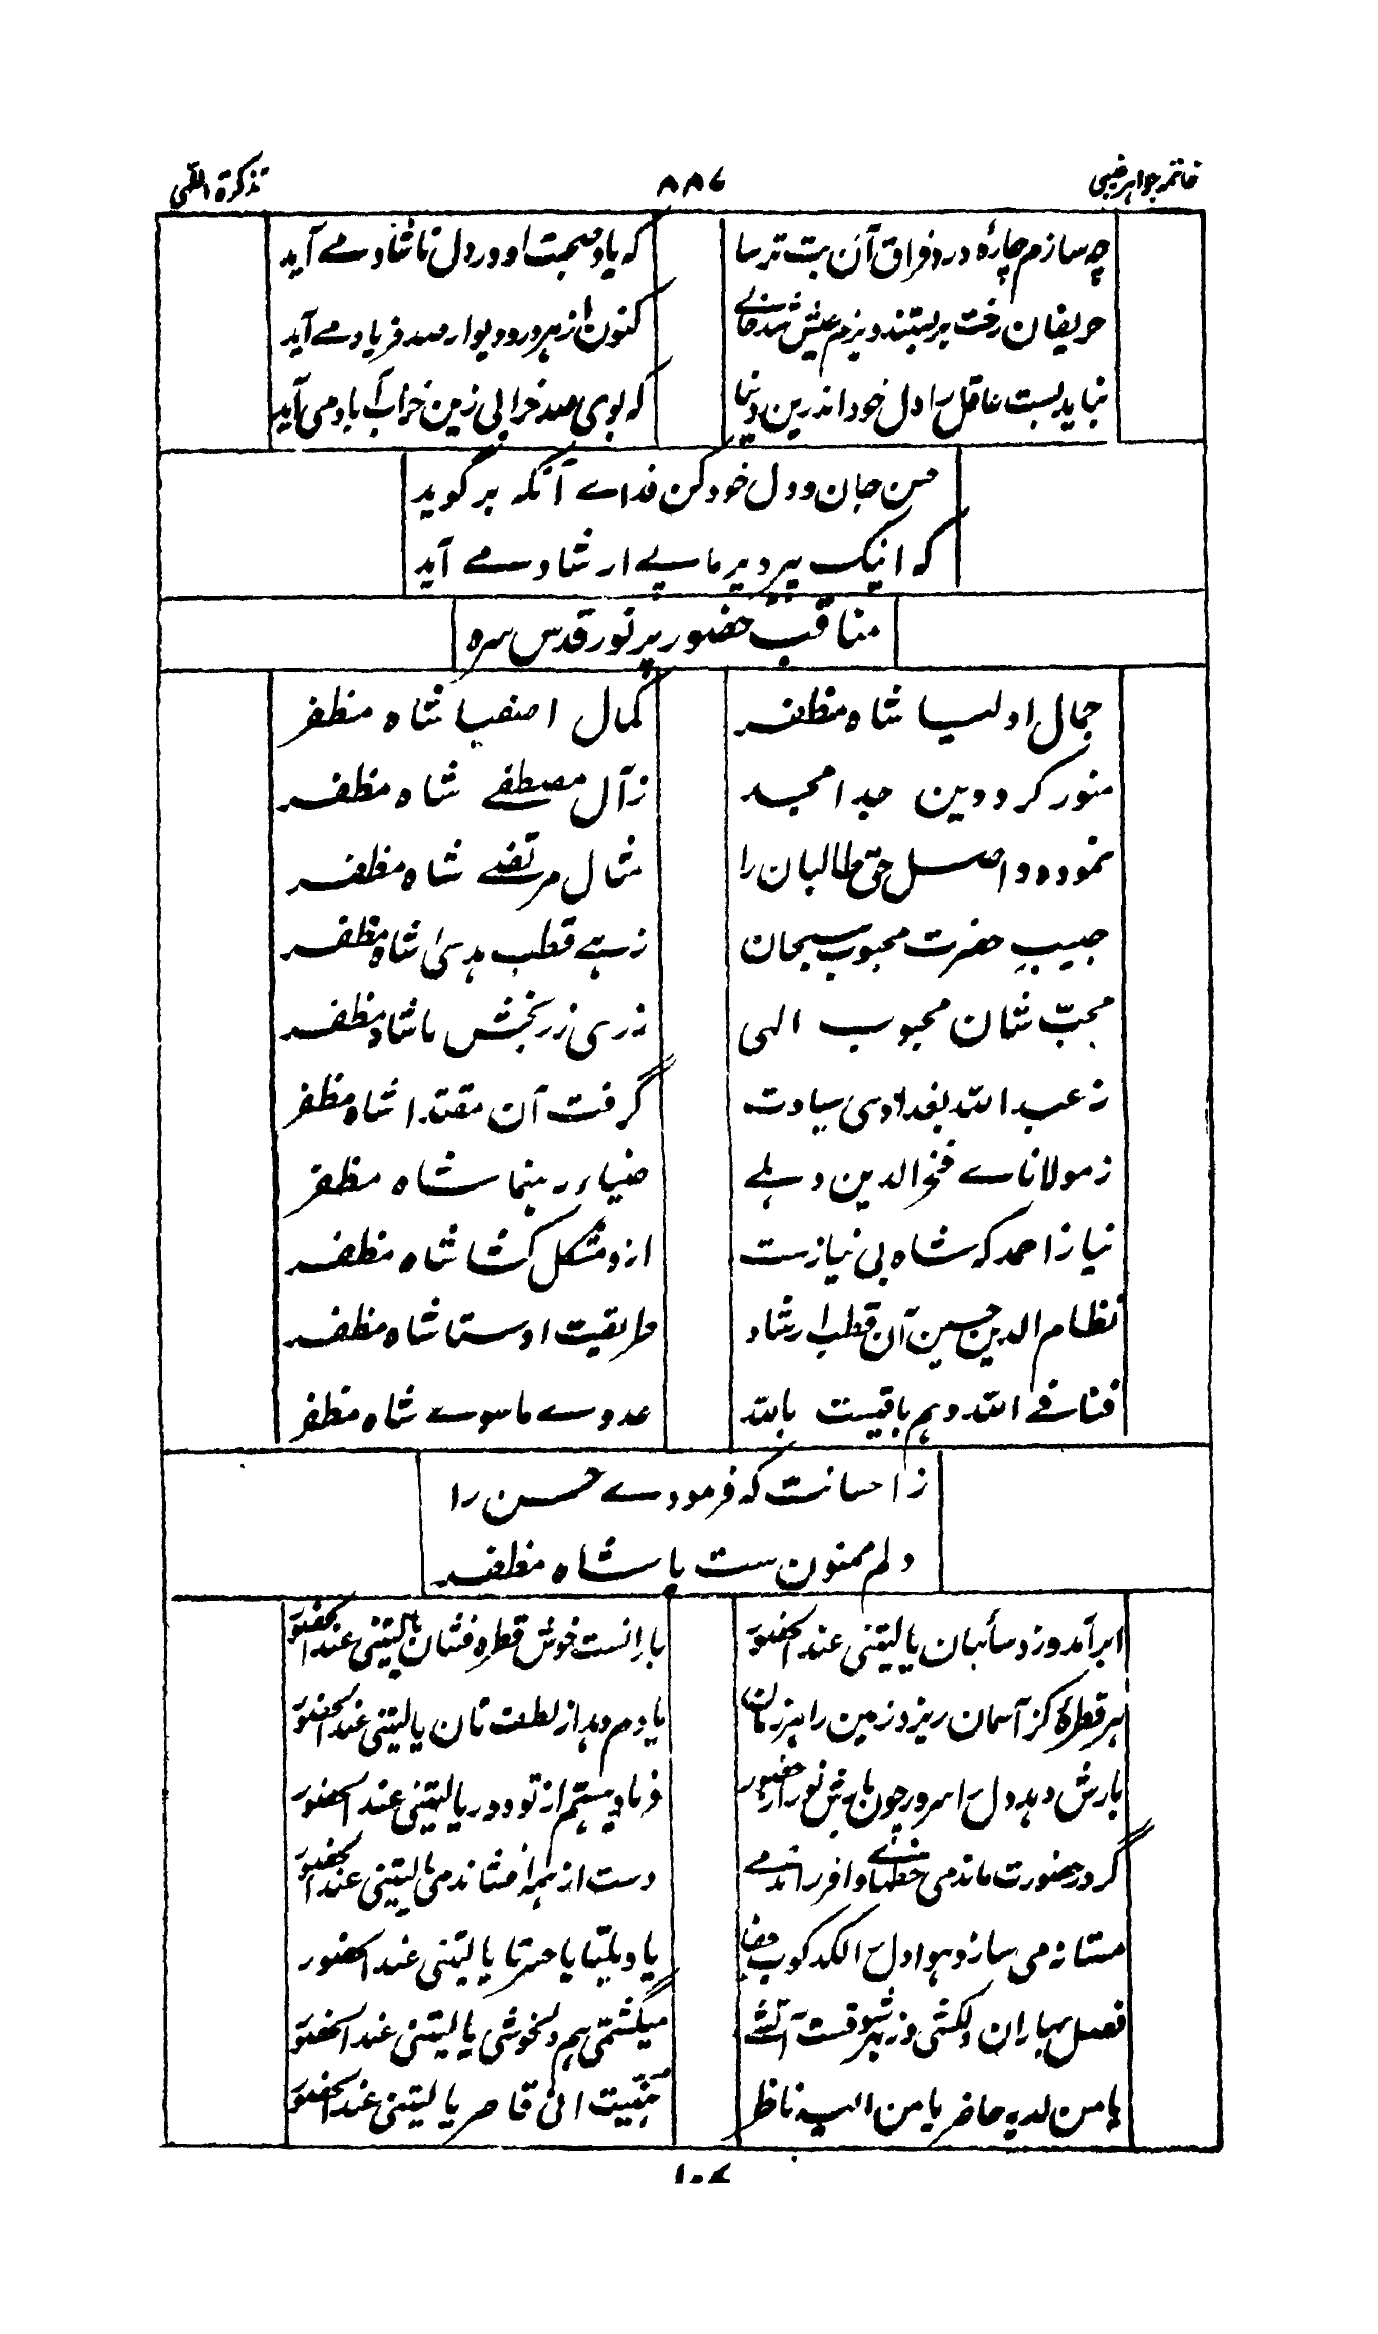 خاتمه جواهر غیبی ۸۸۶ تذکرة المتقی
چه سازم چارهٔ درد فراق آن بت ترسا که یاد صحبت او در دل ناشاد مے آید
حریفان رخت بر بستند و بزم عیش شد خالے کنون از هر در و دیوار صد فریاد مے آید
نباید بست عاقل را دل خود اندرین دنیا که بوی صد خرابی زین خراب آباد می آید
حسن جان و دل خود کن فداے آنکه برگوید
که اینک پیر دیر ما پے ارشاد مے آید
مناقب حضور پر نور قدس سره
جمال اولیا شاه مظفر کمال اصفیا شاه مظفر
منور کرد دین جد امجد ز آل مصطفے شاه مظفر
نموده واصل حق طالبان را مثال مرتضے شاه مظفر
حبیب حضرت محبوب سبحان زہے قطب ہدیٰ شاه مظفر
محبّ شان محبوب الہی زری زر بخش ما شاه مظفر
ز عبد اللہ بغدادی سیادت گرفت آن مقتدا شاه مظفر
ز مولاناے فخر الدین دہلے ضیاء رہنما شاه مظفر
نیاز احمد که شاه بی نیاز ست ازو مشکل کشا شاه مظفر
نظام الدین حسین آن قطب ارشاد طریقیت اوستا شاه مظفر
فنا فے اللہ و ہم باقیست باللہ عدوے ماسوے شاه مظفر
ز احسانت که فرمودے حسن را
دلم ممنون ست یا شاه مظفر
ابر آمد وزد سأبان یا لیتنی عند الحضور بارانست خوش قطره فشان یا لیتنی عند الحضور
ہر قطرۂ کز آسمان ریزد زمین را ہر زمان یادم دہد از لطف تان یا لیتنی عند الحضور
بارش دہد دل را سرور چون بارش نور از حضور فریاد ہستم از تو دور یا لیتنی عند الحضور
گر در حضورت ماندمی حظہاے وافر راندمے دست از ہمہ افشاندمی یا لیتنی عند الحضور
مستانه می سازد ہوا دل را لگد کوب جفا یا ویلتا یا حسرتا یا لیتنی عند الحضور
فصل بہاران دلکشی وز بہر شوقت آتشے میگشتمی ہم دلخوشی یا لیتنی عند الحضور
یا من لدیه حاضر یا من الیه ناظر انی قاصر یا لیتنی عند الحضور
۱۰۶